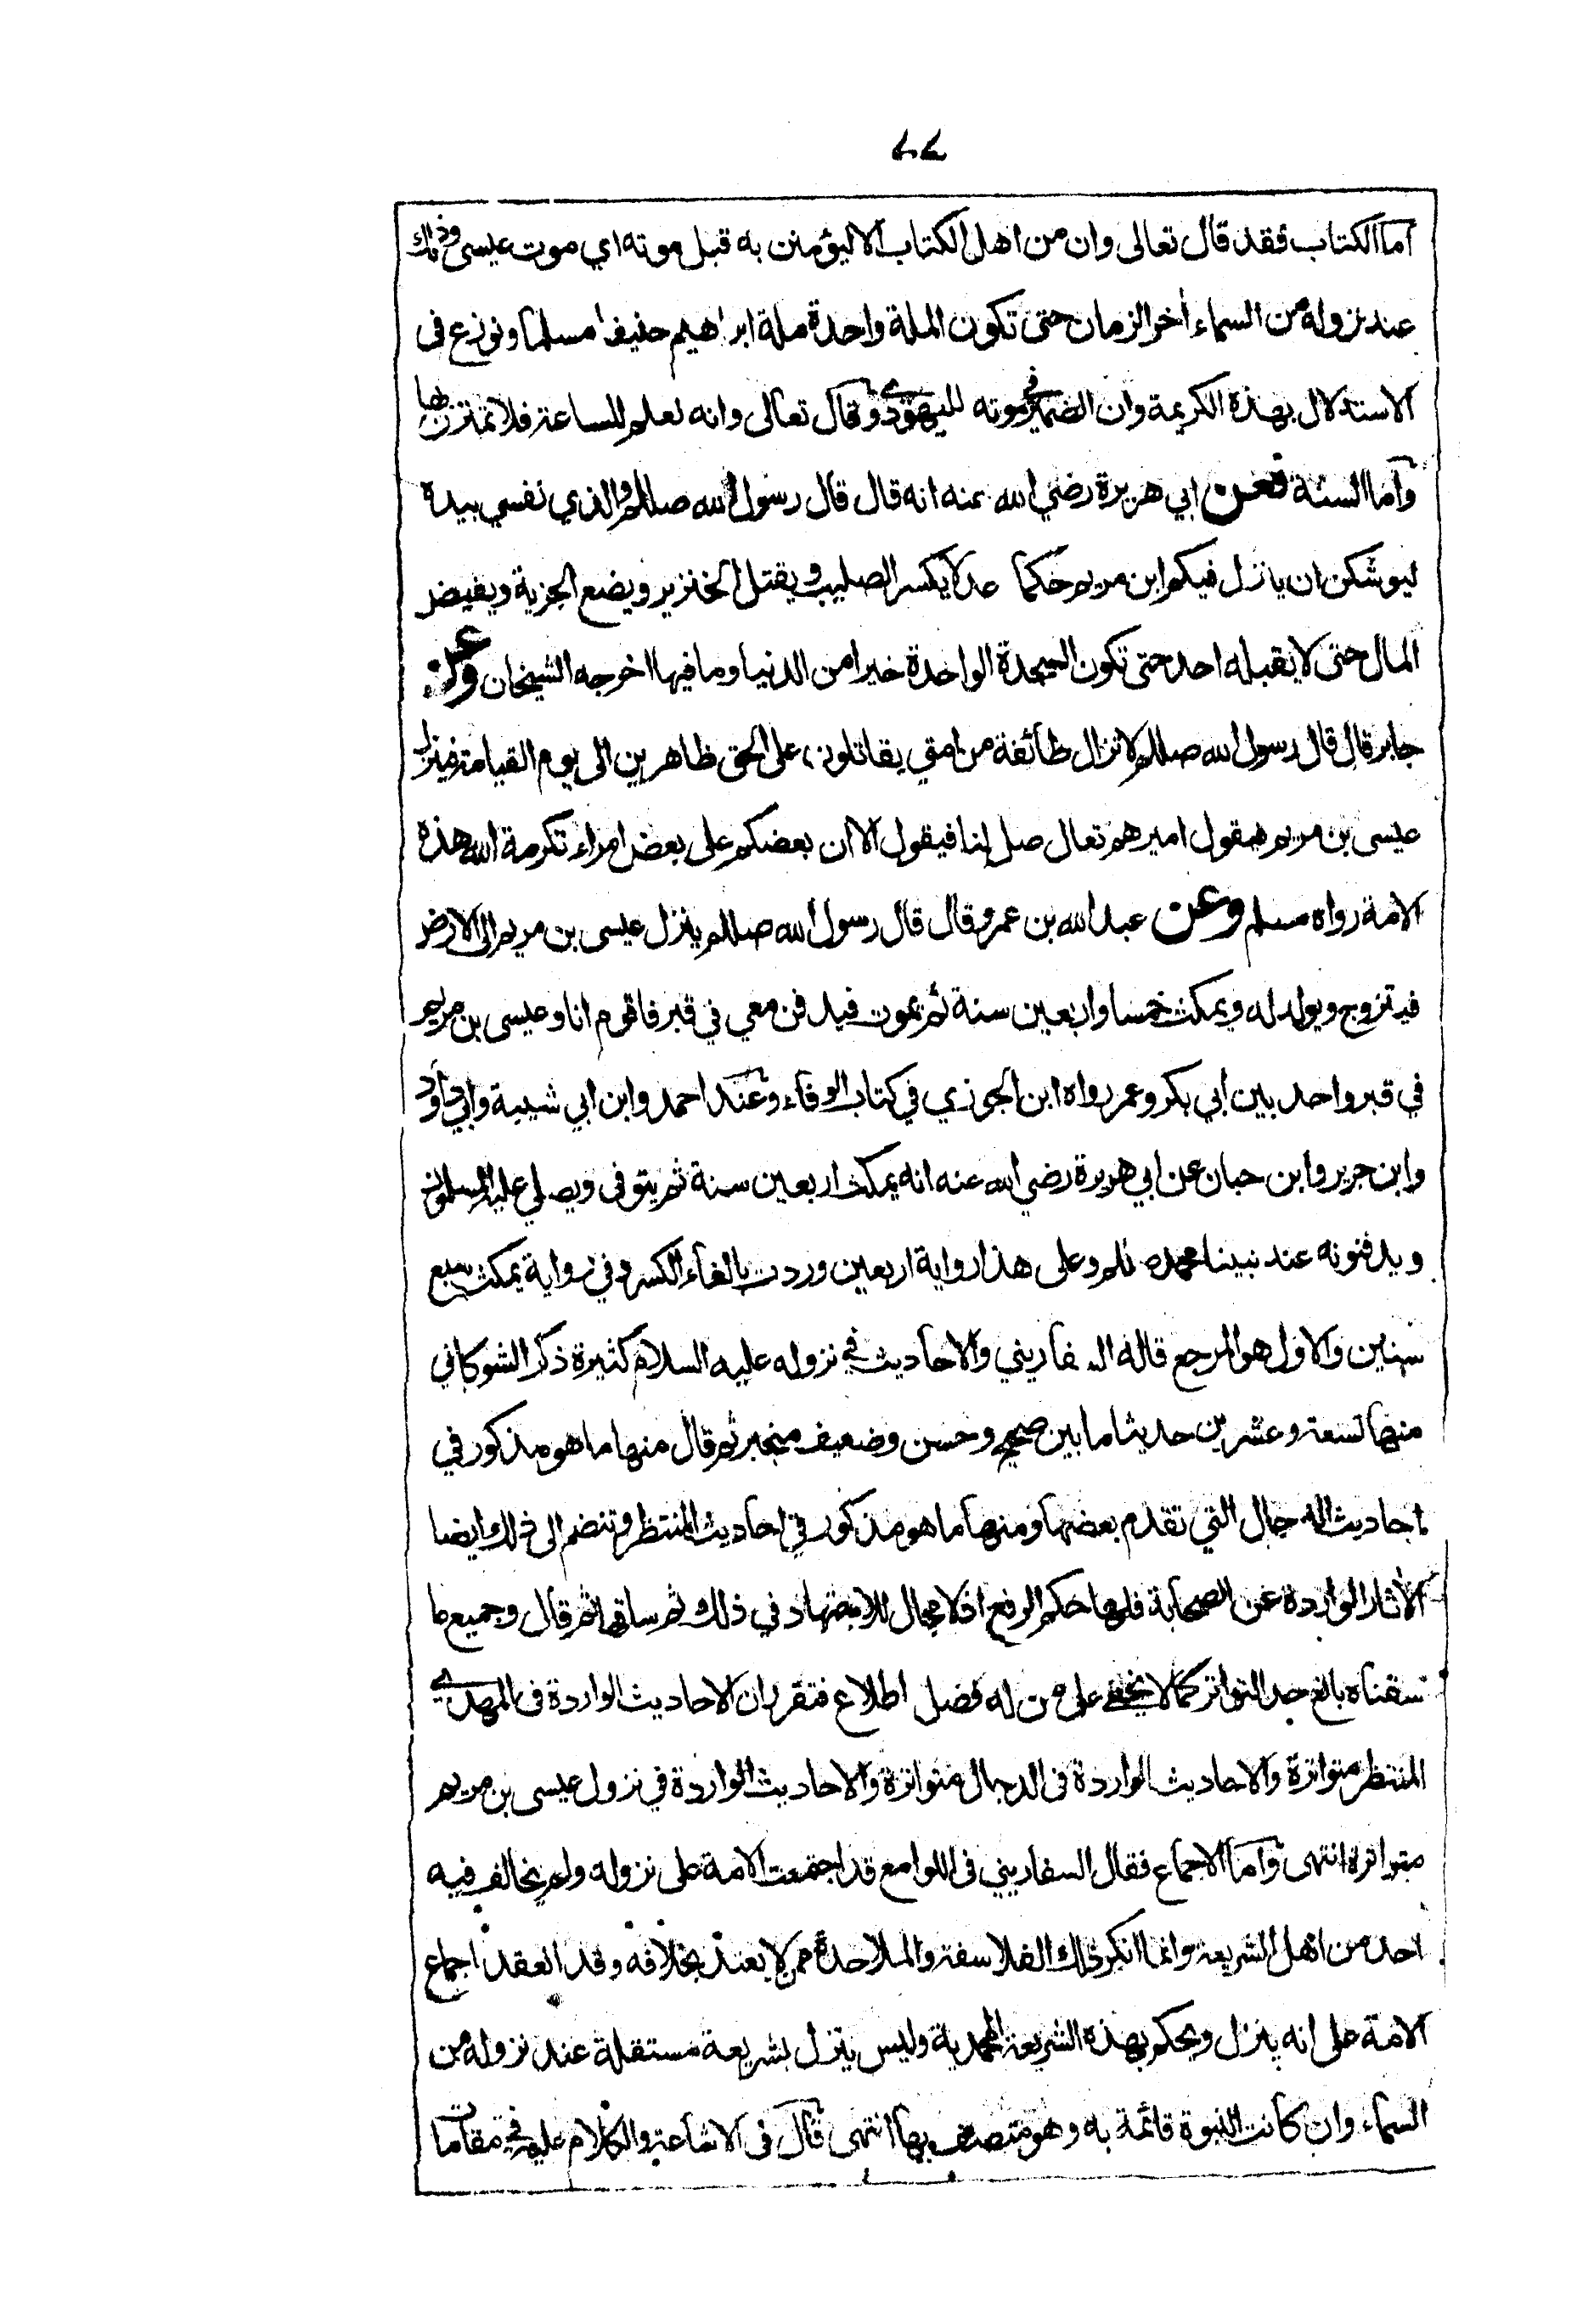 ٧٧
اما الكتاب فقد قال تعالى وان من اهل الكتاب الا ليؤمنن به قبل موته اي موت عيسى وذلك
عند نزوله من السماء أخر الزمان حتى تكون الملة واحدة ملة ابراهيم حنيفا مسلما ونوزع فى
الاستدلال بهذه الكريمة وان الضمير في موته لليهودي وقال تعالى وانه لعلم للساعة فلا تمترن بها
وأما السنة فعن ابي هريرة رضي الله عنه انه قال قال رسول الله صللم والذي نفسي بيده
ليوشكن ان ينزل فيكم ابن مريم حكما عدلا يكسر الصليب ويقتل الخنزير ويضع الجزية ويفيض
المال حتى لا يقبله احد حتى تكون السجدة الواحدة خيرا من الدنيا وما فيها اخرجه الشيخان وعن
جابر قال قال رسول الله صللم لا تزال طائفة من امتي يقاتلون على الحق ظاهرين الى يوم القيامة فينزل
عيسى بن مريم فيقول اميرهم تعال صل لنا فيقول الا ان بعضكم على بعض امراء تكرمة الله هذه
الامة رواه مسلم وعن عبد الله بن عمرو قال قال رسول الله صللم ينزل عيسى بن مريم الى الارض
فيتزوج ويولد له ويمكث خمسا واربعين سنة ثم يموت فيدفن معي في قبر فاقوم انا وعيسى بن مريم
في قبر واحد بين ابي بكر وعمر رواه ابن الجوزي في كتاب الوفاء وعند احمد وابن ابي شيبة وابي داود
وابن جرير وابن حبان عن ابي هريرة رضي الله عنه انه يمكث اربعين سنة ثم يتوفى ويصلي عليه المسلمون
ويدفنونه عند نبينا محمد صللم وعلى هذا رواية اربعين وردت بالغاء الكسر وفي رواية يمكث سبع
سنين والاول هو المرجع قاله السفاريني والاحاديث في نزوله عليه السلام كثيرة ذكر الشوكاني
منها تسعة وعشرين حديثا ما بين صحيح وحسن وضعيف منجبر ثم قال منها ما هو مذكور في
احاديث الدجال التي تقدم بعضها ومنها ما هو مذكور في احاديث المنتظر وتنضم الى ذلك ايضا
الأثار الواردة عن الصحابة فلها حكم الرفع اذ لا مجال للاجتهاد في ذلك ثم ساقها ثم قال وجميع ما
سقناه بالغ حد التواتر كما لا يخفى على من له فضل اطلاع فتقرر ان الاحاديث الواردة فى المهدي
المنتظر متواترة والاحاديث الواردة فى الدجال متواترة والاحاديث الواردة في نزول عيسى بن مريم
متواترة انتهى وأما الاجماع فقال السفاريني فى اللوامع قد اجتمعت الامة على نزوله ولم يخالف فيه
احد من اهل الشريعة وانما انكر ذلك الفلاسفة والملاحدة ممن لا يعتد بخلافه وقد انعقد اجماع
الامة على انه ينزل ويحكم بهذه الشريعة المحمدية وليس ينزل بشريعة مستقلة عند نزوله من
السماء وان كانت النبوة قائمة به وهو متصف بها انتهى قال فى الاشاعة والكلام عليه في مقامات